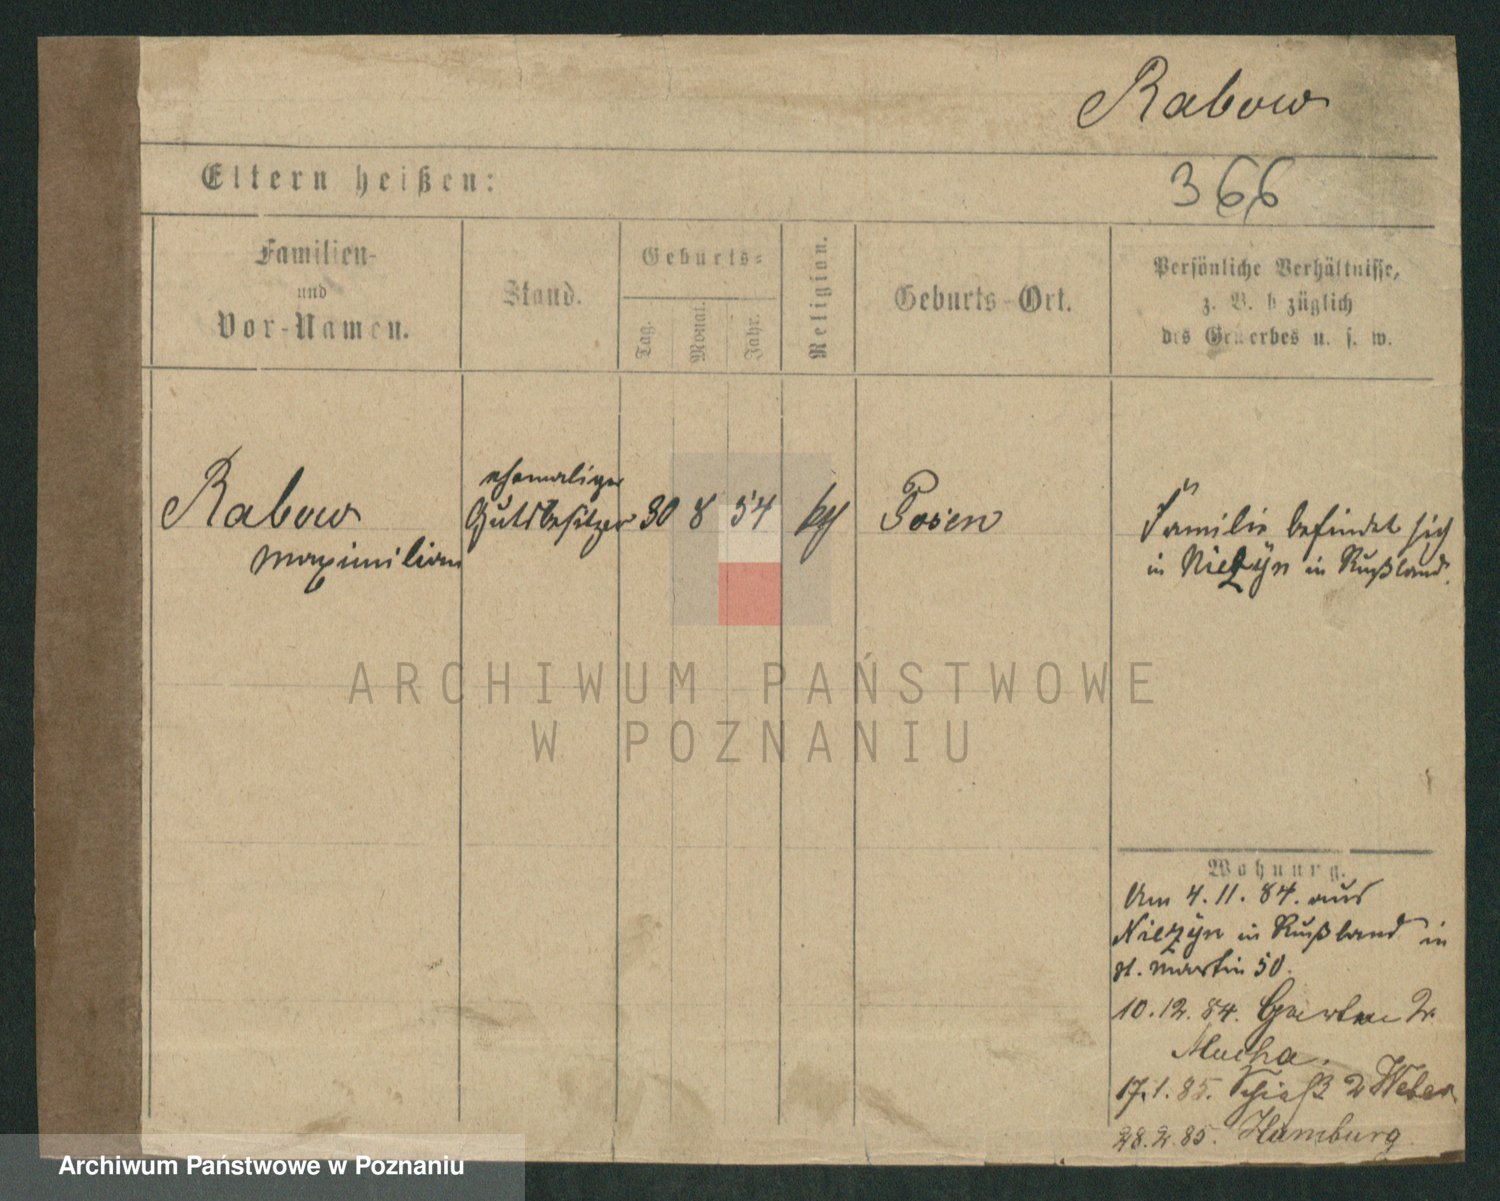 Rabow
366
Eltern heißen:
Familien-
und
Vor-Namen.
Stand.
Geburts-
Tag.
Monat.
Jahr.
Religion.
Geburts-Ort.
Persönliche Verhältnisse,
z. B. b züglich
des Gewerbes u. s. w.
Rabow
Maximilian
ehemaliger
Gutsbesitzer
30 8 54
Posen
Familie befindet sich
in Niezyn in Rußland.
ARCHIWUM PAŃSTWOWE
W POZNANIU
Wohnung.
Am 4.11.84. aus
Niezyn in Rußland in
St. Martin 50.
10.12.84. Garten 2
Mucha.
17.1.85. Schieß 2 Weber
28.2.85. Hamburg.
Archiwum Państwowe w Poznaniu